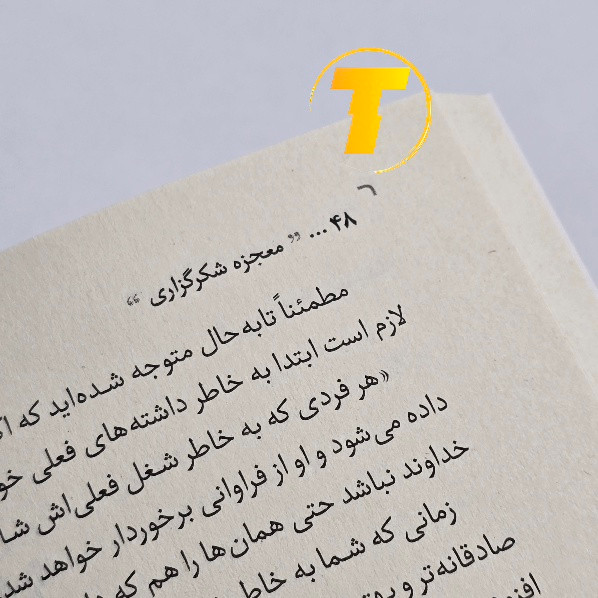 T
۴۸ ... ” معجزه شکرگزاری “
مطمئناً تابه‌حال متوجه شده‌اید که
لازم است ابتدا به خاطر داشته‌های فعلی
«هر فردی که به خاطر شغل فعلی‌اش
داده می‌شود و او از فراوانی برخوردار خواهد
خداوند نباشد حتی همان‌ها را هم که
زمانی که شما به خاطر
صادقانه‌تر و